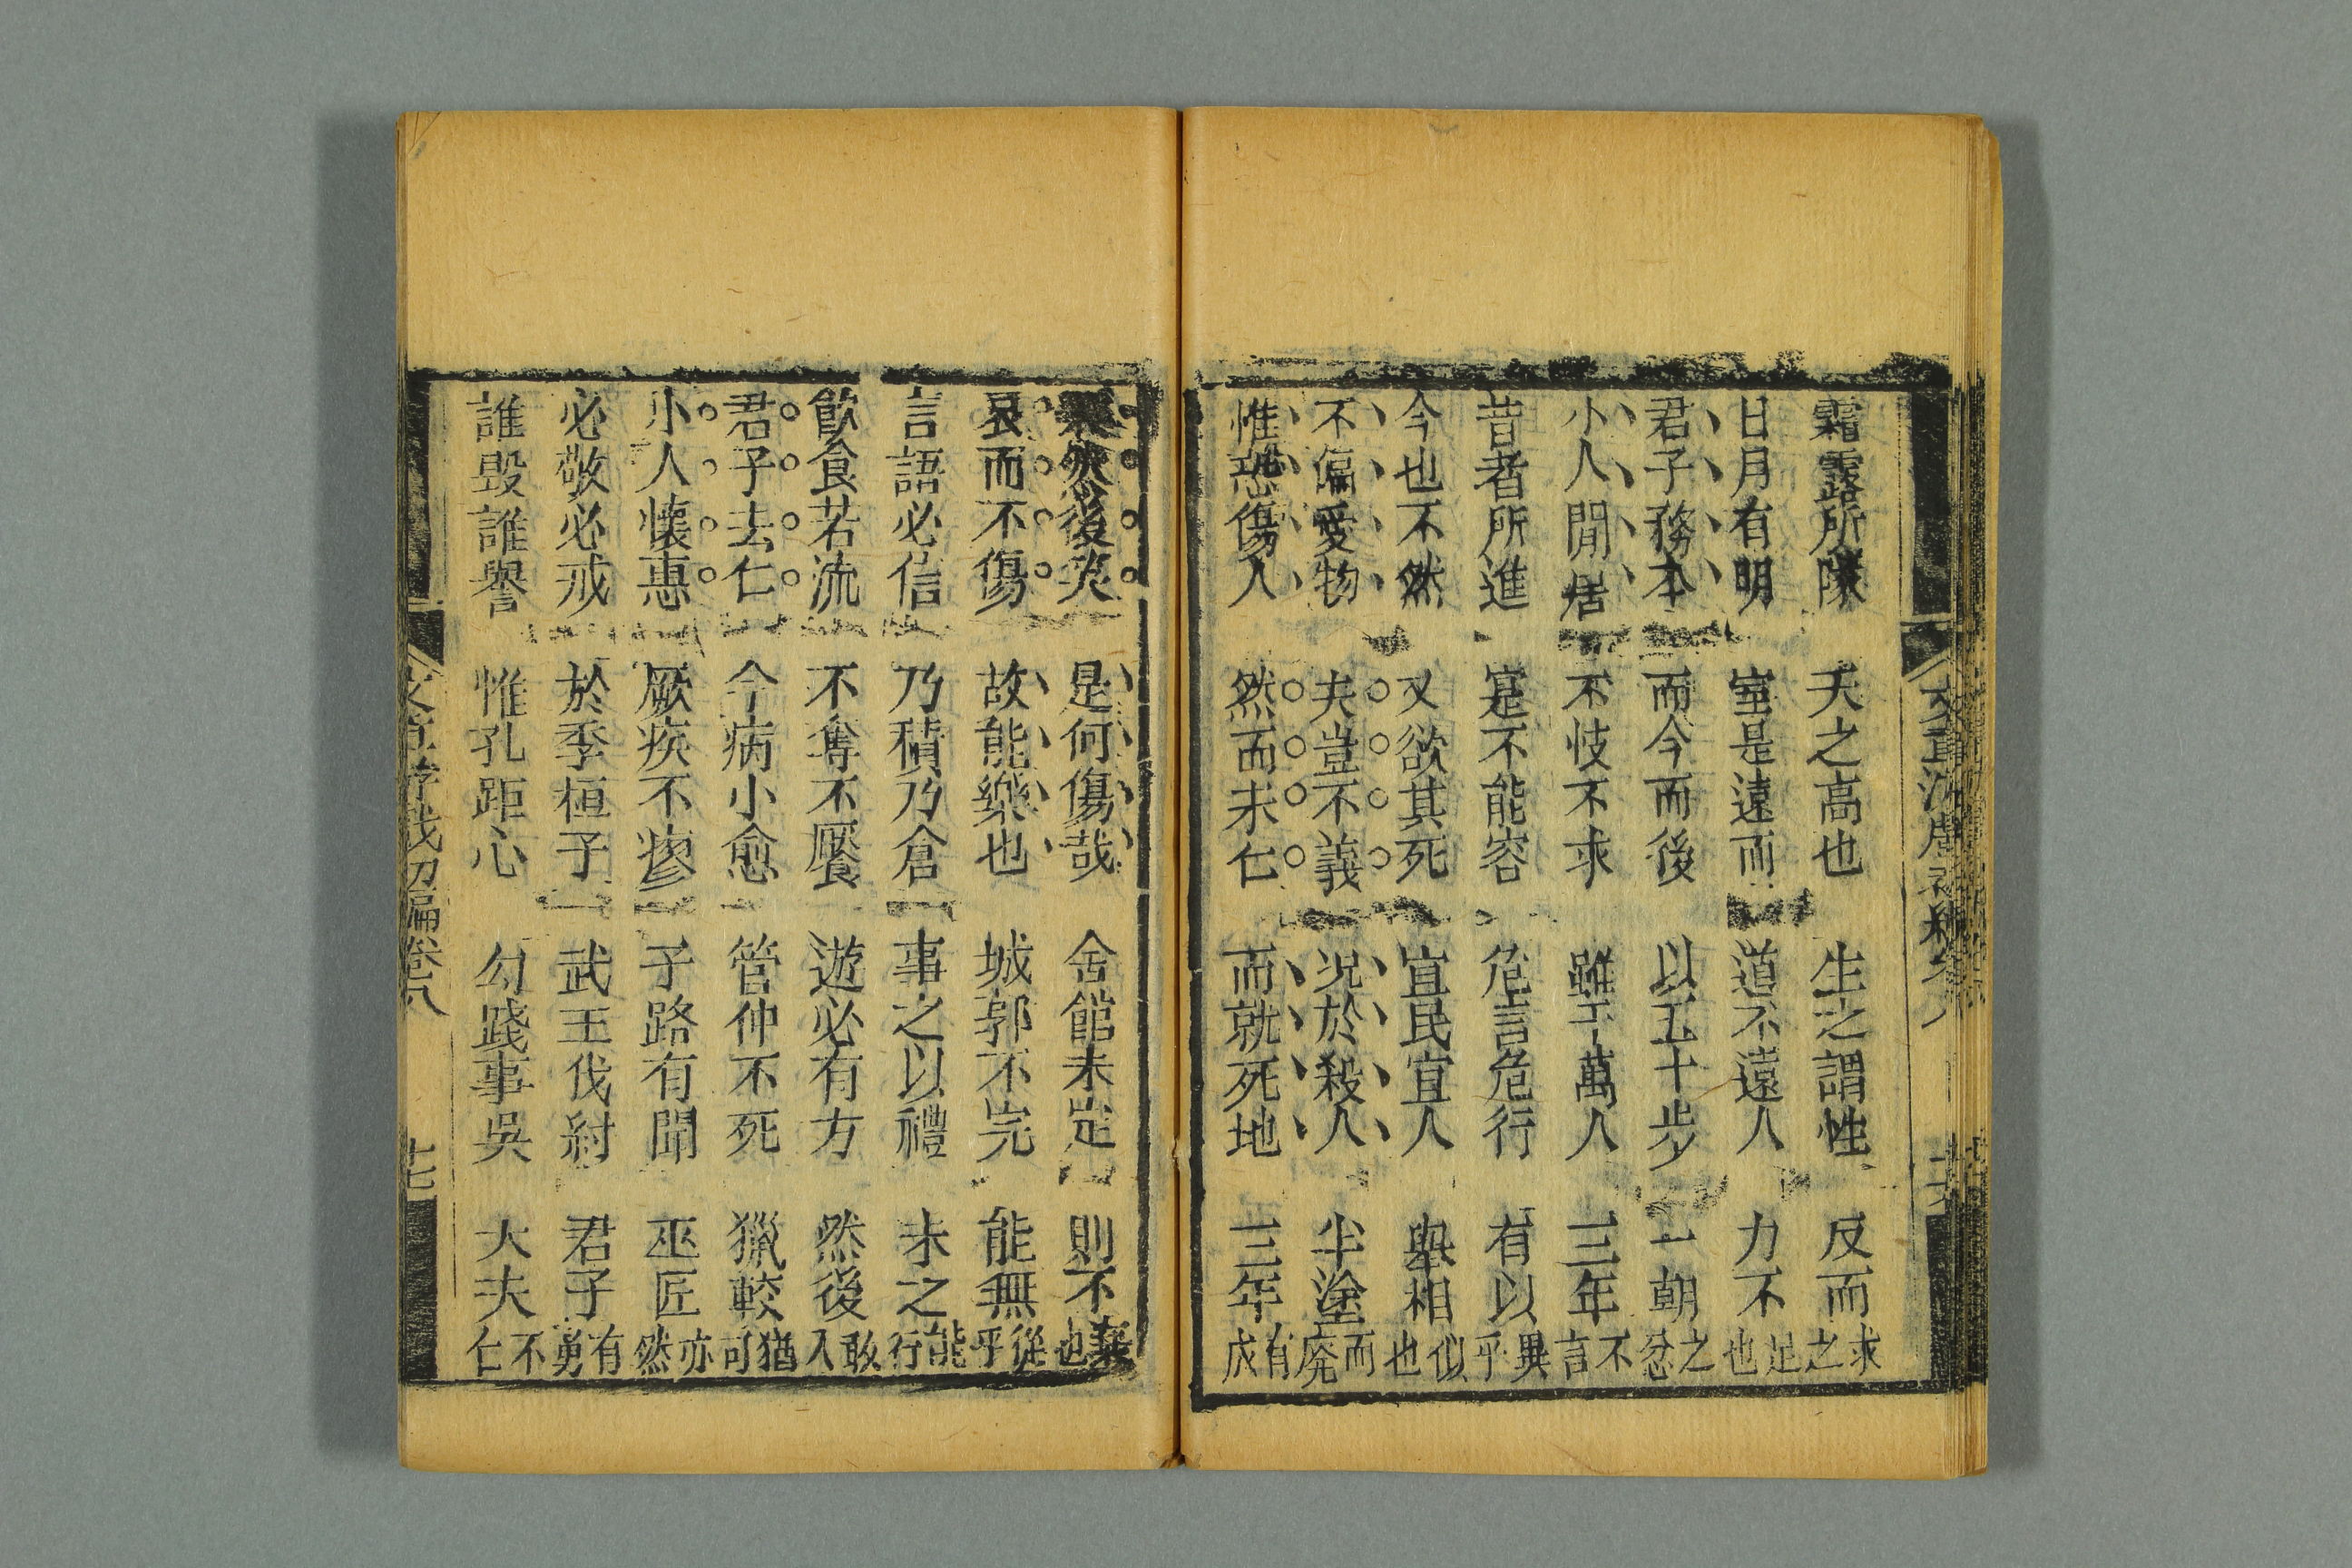 霜露所隊　天之高也　生之謂性　反而求之
日月有明　室是遠而　道不遠人　力不足也
君子務本　而今而後　以五十步　一朝之忿
小人閒居　不忮不求　雖千萬人　三年不言
昔者所進　寔不能容　危言危行　有以異乎
今也不然　又欲其死　宜民宜人　舉相似也
不偏愛物　夫豈不義　況於殺人　半塗而廢
惟恐傷人　然而未仁　而就死地　三年有成
樂然後笑　是何傷哉　舍館未定　則不也
哀而不傷　故能樂也　城郭不完　能無從乎
言語必信　乃積乃倉　事之以禮　未之能行
飲食若流　不奪不饜　遊必有方　然後敢入
君子去仁　今病小愈　管仲不死　獵較猶可
小人懷惠　厥疾不瘳　子路有聞　巫匠亦然
必敬必戒　於季桓子　武王伐紂　君子有勇
誰毀誰譽　惟孔距心　勾踐事吳　大夫不仁
初編卷八
十七